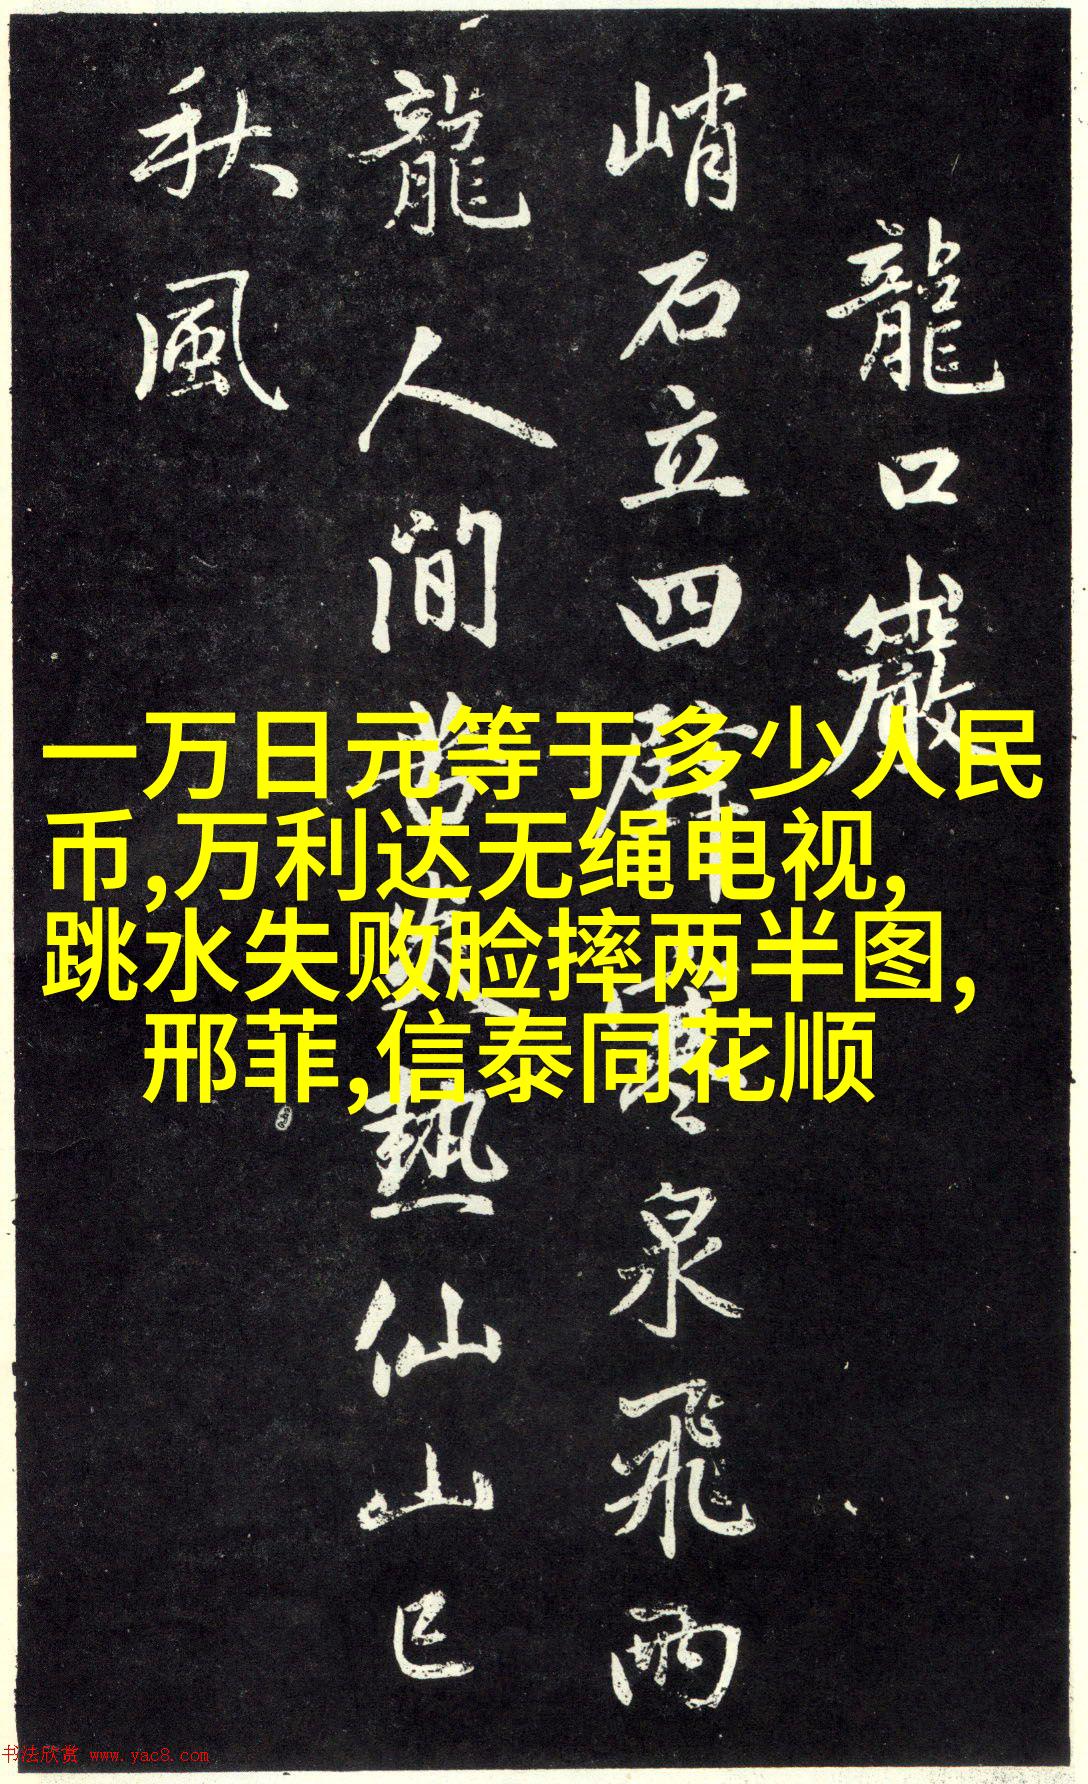 龍口巖
峭石立四壁寒泉飛雨
龍人間苦炎熱仙山已
秋風
一万日元等于多少人民
币,万利达无绳电视,
跳水失败脸摔两半图,
邢菲,信泰同花顺
书法欣赏 www.yac8.com